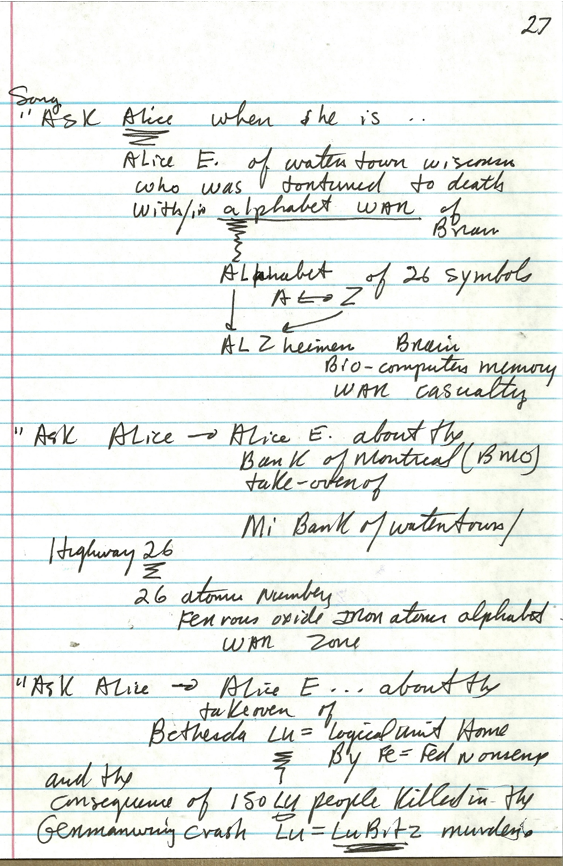 27
Song
"ASK Alice when she is ..
Alice E. of watertown wisconsin
who was tortured to death
with/in alphabet WAR of
Brain
ALphabet of 26 symbols
A ↔ Z
ALZheimer Brain
Bio-computers memory
WAR casualty
"Ask Alice → Alice E. about the
Bank of Montreal (BMO)
take-over of
Mi Bank of watertown/
Highway 26
26 atomic number
Ferrous oxide Iron atomic alphabet
WAR Zone
"Ask Alice → Alice E... about the
takeover of
Bethesda Lu = Logical unit Home
By Fe = Fed Nonsense
and the
consequence of 150 Lu people killed in the
Germanwing crash Lu = LuBitz murders